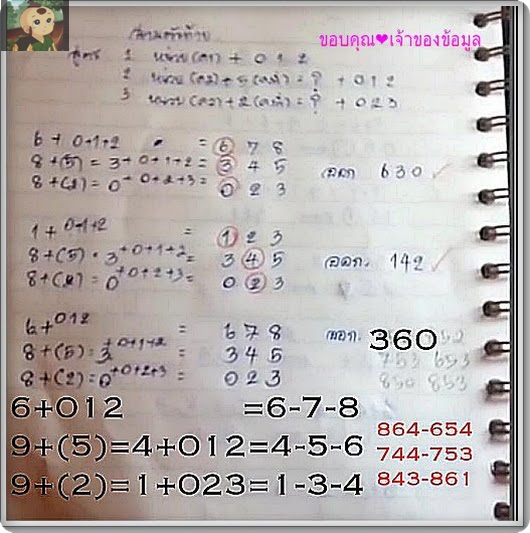 ขอบคุณ❤เจ้าของข้อมูล
สูตร 1 หน่วย(ตา) + 0 1 2
2 + 5 = ? + 0 1 2
3 + 2 = ? + 0 2 3
6 + 0+1+2 = 6 7 8
8 + (5) = 3 + 0+1+2 = 3 4 5 ออก 630 ✓
8 + (2) = 0 + 0+2+3 = 0 2 3
1 + 0+1+2 = 1 2 3
8 + (5) = 3 +0+1+2 = 3 4 5 ออก. 142 ✓
8 + (2) = 0 +0+2+3 = 0 2 3
6 + 012 = 6 7 8 ออก. 360
8 + (5) = 3 +0+1+2 = 3 4 5 753 653
8 + (2) = 0 +0+2+3 = 0 2 3 850 853
6+012 =6-7-8
9+(5)=4+012=4-5-6
9+(2)=1+023=1-3-4
864-654
744-753
843-861